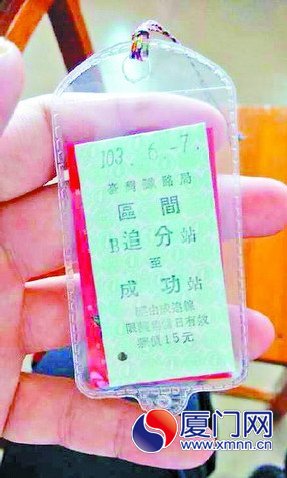 103. 6. -7.
臺灣鐵路局
區間
B追分站
至
成功站
經由成追線
限發售當日有效
票價15元
厦门网
www.xmnn.cn